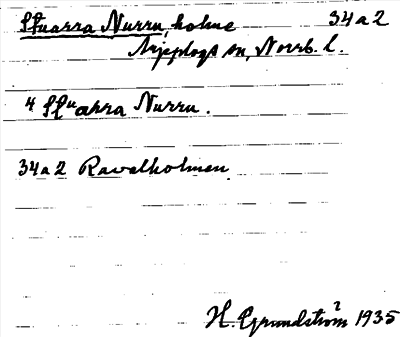 Stuarra Nurru, holme 34a2
Arjeplogs sn, Norrb. l.
Nurru.
34a2 Ravelholmen
H. Grundström 1935